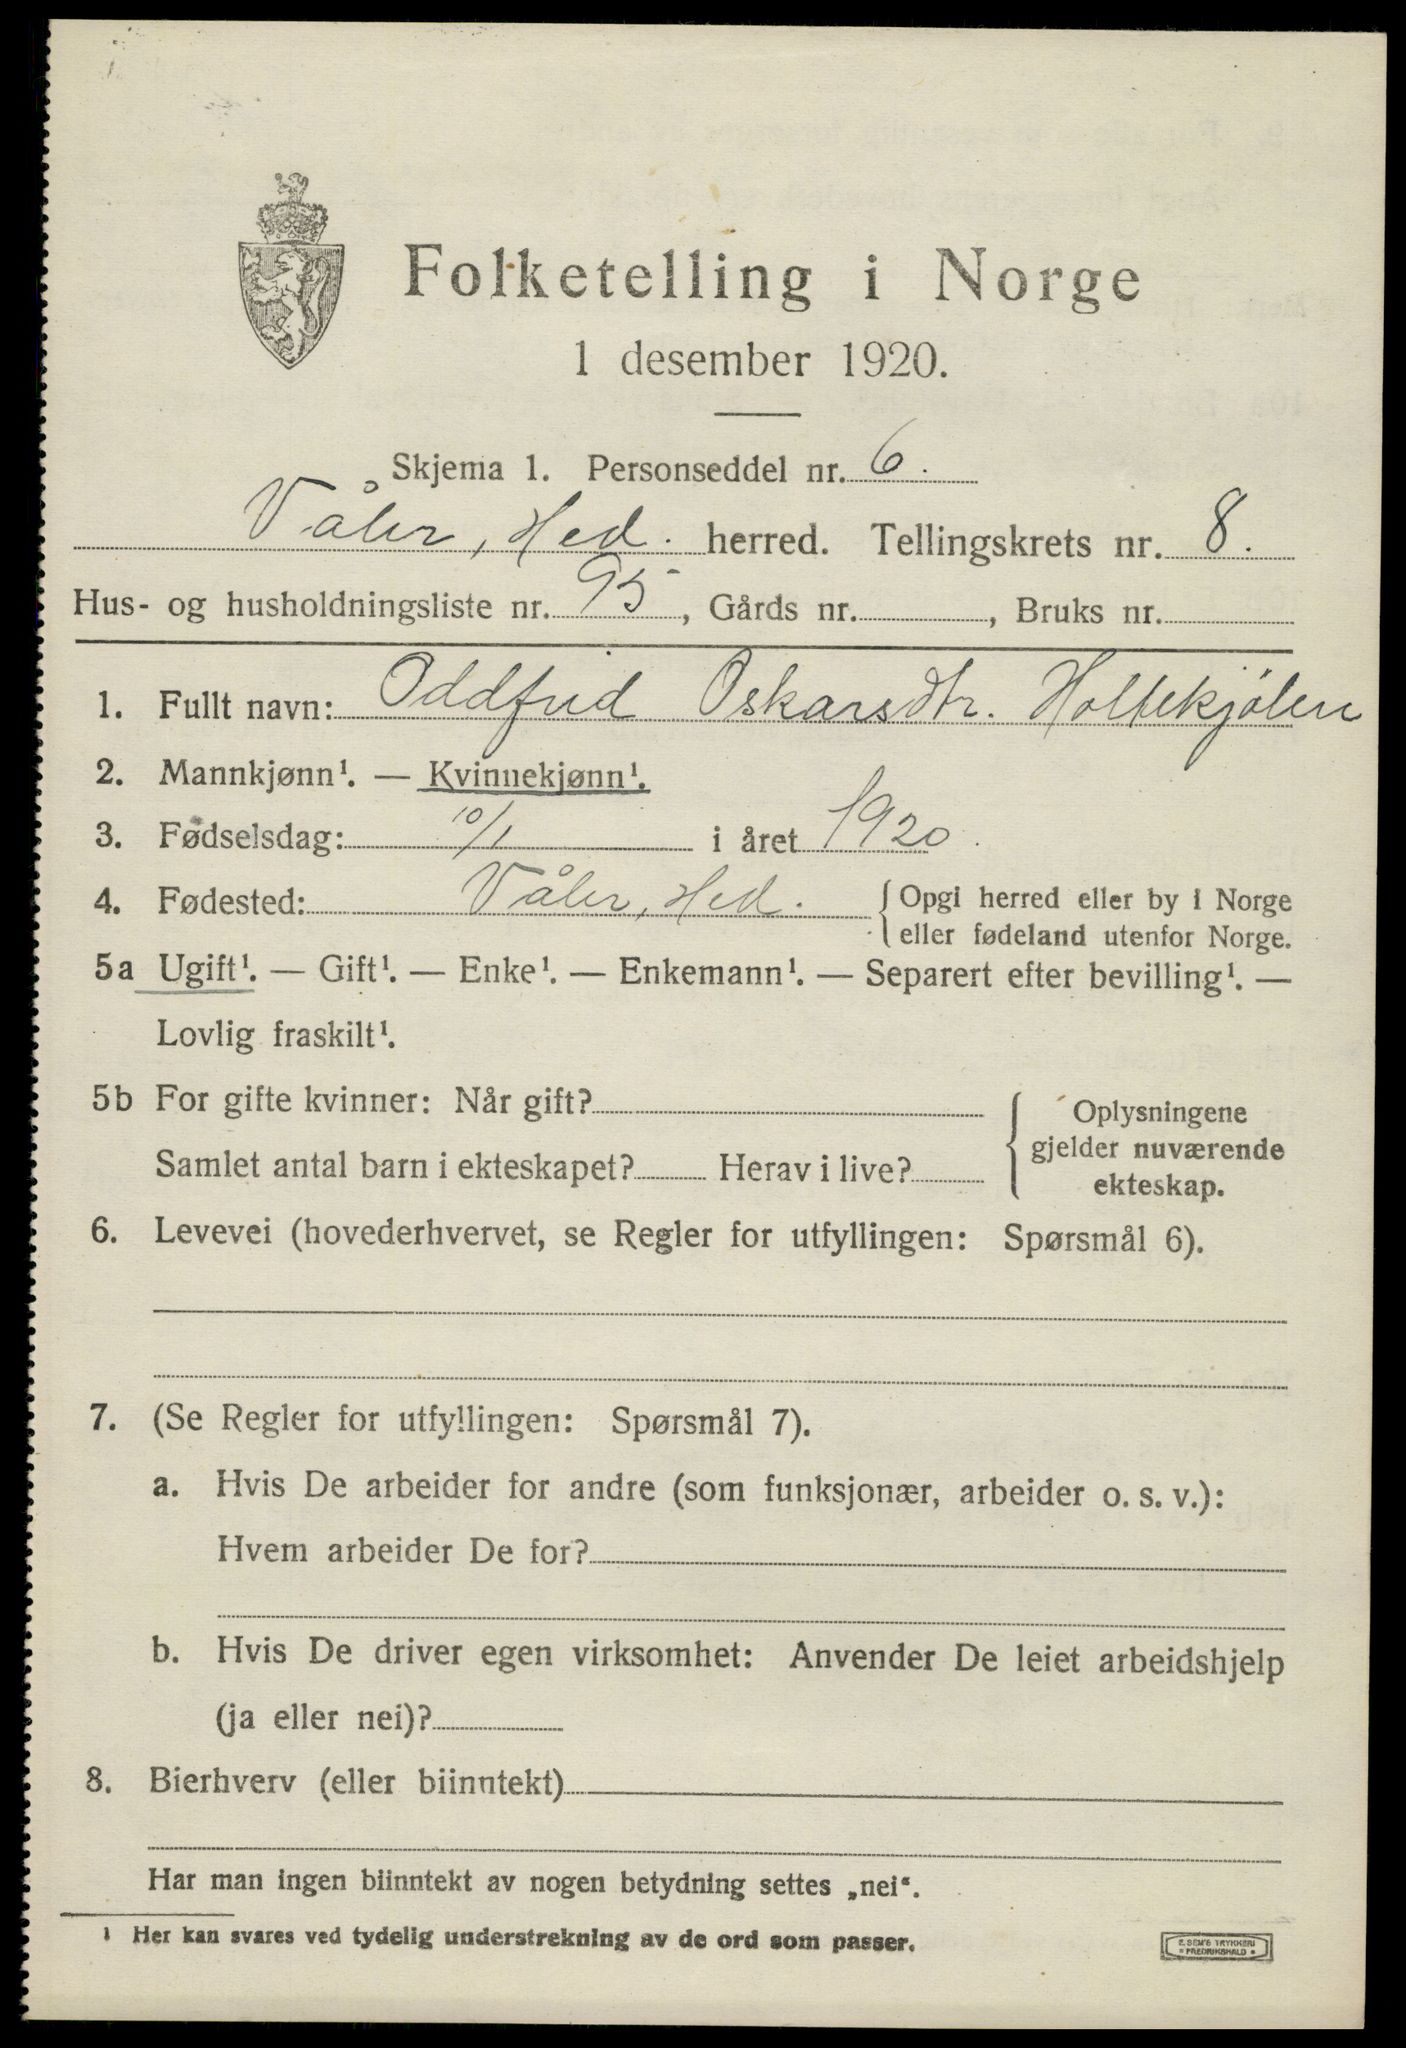 Folketelling i Norge
1 desember 1920.
Skjema 1. Personseddel nr. 6.
Våler, Hed. herred. Tellingskrets nr. 8.
Hus- og husholdningsliste nr. 95, Gårds nr. , Bruks nr.
1. Fullt navn: Oddfrid Oskarsdtr. Holtekjölen
2. Mannkjønn¹. — Kvinnekjønn¹.
3. Fødselsdag: 10/1 i året 1920.
4. Fødested: Våler, Hed. { Opgi herred eller by i Norge
eller fødeland utenfor Norge.
5a Ugift¹. — Gift¹. — Enke¹. — Enkemann¹. — Separert efter bevilling¹. —
Lovlig fraskilt¹.
5b For gifte kvinner: Når gift?
Samlet antal barn i ekteskapet? Herav i live?
{ Oplysningene
gjelder nuværende
ekteskap.
6. Levevei (hovederhvervet, se Regler for utfyllingen: Spørsmål 6).
7. (Se Regler for utfyllingen: Spørsmål 7).
a. Hvis De arbeider for andre (som funksjonær, arbeider o. s. v.):
Hvem arbeider De for?
b. Hvis De driver egen virksomhet: Anvender De leiet arbeidshjelp
(ja eller nei)?
8. Bierhverv (eller biinntekt)
Har man ingen biinntekt av nogen betydning settes „nei“.
¹ Her kan svares ved tydelig understrekning av de ord som passer.
E. SEM'S TRYKKERI
FREDRIKSHALD